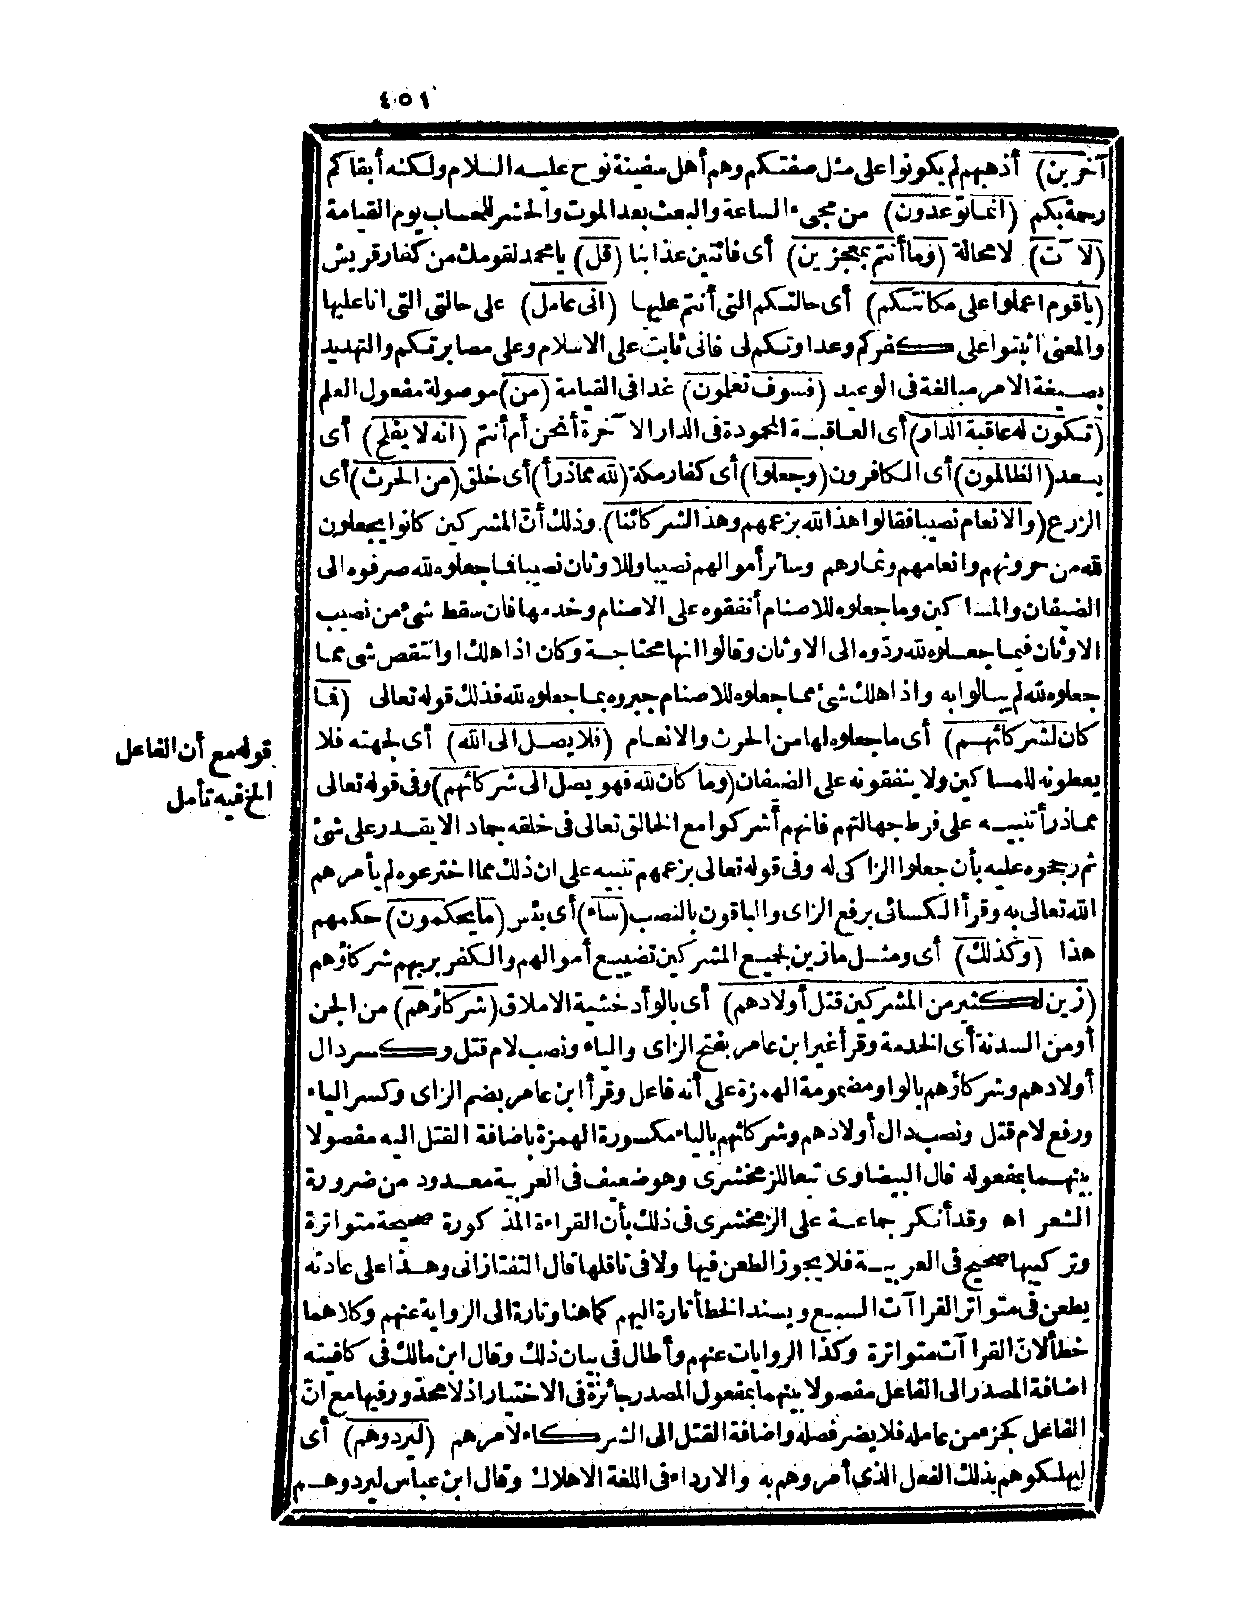 ٤٥١
آخرين) أذهبهم لم يكونوا على مثل صفتكم وهم أهل سفينة نوح عليه السلام ولكنه أبقاكم
رحمة بكم (انما توعدون) من مجىء الساعة والبعث بعد الموت والحشر للحساب يوم القيامة
(لآت) لا محالة (وما أنتم بمعجزين) أى فائتين عذابنا (قل) يا محمد لقومك من كفار قريش
(ياقوم اعملوا على مكانتكم) أى حالتكم التى أنتم عليها (انى عامل) على حالتى التى انا عليها
والمعنى اثبتوا على كفركم وعداوتكم لى فانى ثابت على الاسلام وعلى مصابرتكم والتهديد
بصيغة الامر مبالغة فى الوعيد (فسوف تعلمون) غدا فى القيامة (من) موصولة مفعول العلم
(تكون له عاقبة الدار) أى العاقبة المحمودة فى الدار الآخرة أنحن أم أنتم (انه لا يفلح) أى
يسعد (الظالمون) أى الكافرون (وجعلوا) أى كفار مكة (لله مماذرأ) أى خلق (من الحرث) أى
الزرع (والانعام نصيبا فقالوا هذا لله بزعمهم وهذا لشركائنا) وذلك أنّ المشركين كانوا يجعلون
لله من حروثهم وانعامهم وثمارهم وسائر أموالهم نصيبا وللاوثان نصيبا فما جعلوه لله صرفوه الى
الضيفان والمساكين وما جعلوه للاصنام أنفقوه على الاصنام وخدمها فان سقط شئ من نصيب
الاوثان فيما جعلوه لله ردّوه الى الاوثان وقالوا انها محتاجة وكان اذا هلك او انتقص شى مما
جعلوه لله لم يبالوا به واذا هلك شئ مما جعلوه للاصنام جبروه بما جعلوه لله فذلك قوله تعالى (فما
كان لشركائهم) أى ما جعلوه لها من الحرث والانعام (فلا يصل الى الله) أى لجهته فلا
يعطونه للمساكين ولا ينفقونه على الضيفان (وما كان لله فهو يصل الى شركائهم) وفى قوله تعالى
مماذرأ تنبيه على فرط جهالتهم فانهم أشركوا مع الخالق تعالى فى خلقه جماد الا يقدر على شئ
ثم رجحوه عليه بأن جعلوا الزاكى له وفى قوله تعالى بزعمهم تنبيه على ان ذلك مما اخترعوه لم يأمرهم
الله تعالى به وقرأ الكسائى برفع الزاى والباقون بالنصب (ساء) أى بئس (ما يحكمون) حكمهم
هذا (وكذلك) أى ومثل مازين لجميع المشركين تضييع أموالهم والكفر بربهم شركاؤهم
(زين لكثير من المشركين قتل أولادهم) أى بالوأد خشية الاملاق (شركاؤهم) من الجن
أو من السدنة أى الخدمة وقرأ غير ابن عامر بفتح الزاى والياء ونصب لام قتل وكسر دال
أولادهم وشركاؤهم بالواو مضمومة الهمزة على أنه فاعل وقرأ ابن عامر بضم الزاى وكسر الياء
ورفع لام قتل ونصب دال أولادهم وشركائهم بالياء مكسورة الهمزة باضافة القتل اليه مفصولا
بينهما بمفعوله قال البيضاوى تبعا للزمخشرى وهو ضعيف فى العربية معدود من ضرورة
الشعر اه وقد أنكر جماعة على الزمخشرى فى ذلك بأن القراءة المذكورة صحيحة متواترة
وتركيبها صحيح فى العربية فلا يجوز الطعن فيها ولا فى ناقلها قال التفتازانى وهذا على عادته
يطعن فى متواتر القراآت السبع ويسند الخطأ تارة اليهم كما هنا وتارة الى الرواية عنهم وكلاهما
خطأ لانّ القراآت متواترة وكذا الروايات عنهم وأطال فى بيان ذلك وقال ابن مالك فى كافيته
اضافة المصدر الى الفاعل مفصولا بينهما بمفعول المصدر جائزة فى الاختيار اذ لا محذور فيها مع انّ
الفاعل كجزء من عامله فلا يضر فصله واضافة القتل الى الشركاء لامرهم (ليردوهم) أى
ليهلكوهم بذلك الفعل الذى أمروهم به والارداء فى اللغة الاهلاك وقال ابن عباس ليردوهم
قوله مع أن الفاعل
الخ فيه تأمل